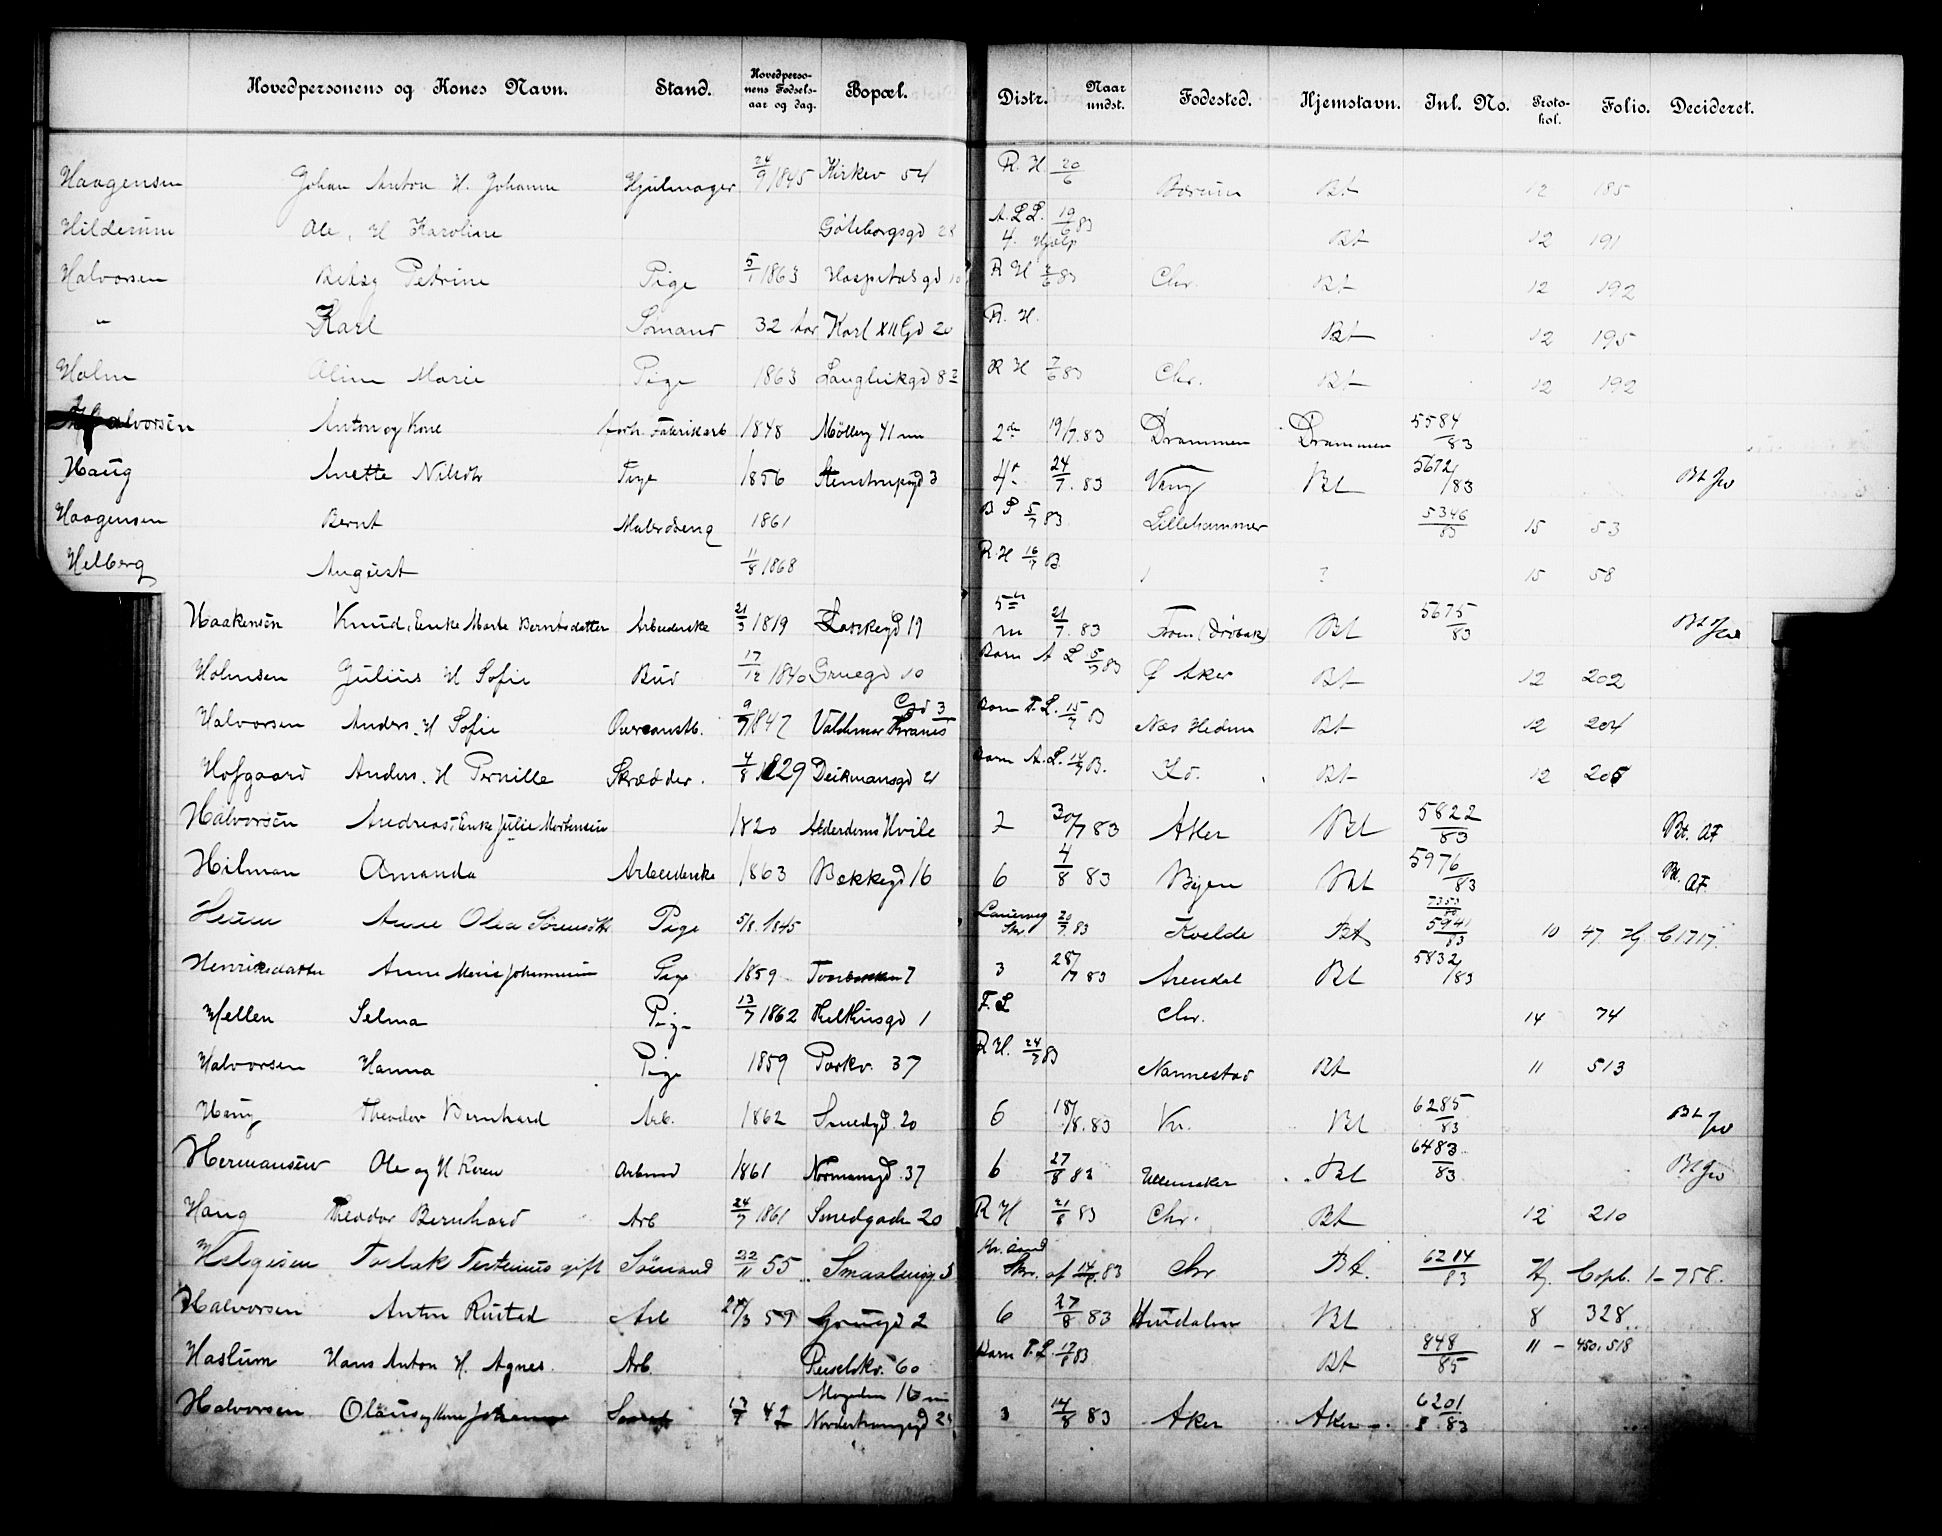 Hovedpersonens og Kones Navn. Stand. Hovedpersonens Fødselsaar og dag. Bopæl. Distr. Naar undst. Fødested. Hjemstavn. Inl. No. Protokol. Folio. Decideret.
Haagensen Johan Anton H. Johanne Hjulmager 24/9 1845 Kirkev 54 R. H. 20/6 Bærum Bt 12 185
Hilderum Ole, H Karoline Göteborgsgd 28 A. L L. 19/6 83 4. Hjælp Bt 12 191
Halvorsen Betsy Petrine Pige 5/1 1863 Hospitalsgd 10 R H 2/6 83 Chr. Bt 12 192
" Karl Sømand 32 Aar Karl XII Gd 20 R. H. Bt 12 195
Holm Aline Marie Pige 1863 Langleikgd 8 R H 7/6 83 Chr. Bt 12 192
Halvorsen Anton og Kone forh. Fabrikarb 1848 Mølleg 41 2 19/7. 83 Drammen Drammen 5584/83
Haug Anette Nilsdtr Pige 1856 Stenstrupgd 3 4 24/7. 83 Vang Bt 5672/83 Bt
Haagensen Bernt Malerdreng 1861 B S 5/7 83 Lillehammer 5346/83 15 53
Helberg August 11/8 1868 R. H 16/7 83 ? 15 58
Haakensen Knud, Enke Marte Berntsdatter Arbeiderske 21/3 1819 19 5 21/7. 83 From (Drøbak) Bt 5675/83 Bt
Holmsen Julius H Sofie Bud 17/12 1840 Gruegd 10 Barn A L 5/7 83 Ø Aker Bt 12 202
Halvorsen Anders. H Sofie Overconstb. 9/7 1847 Valdemar Thranes Gd 3 Barn F. L. 15/7 83 Næs Hedem Bt 12 204
Hofgaard Anders. H Pernille Skrædder. 4/8 1829 Deikmansgd 21 Barn A. L. 14/7 83. Bt 12 205
Halvorsen Andreas, Enke Julie Mortensen 1820 Alderdoms Hvile 2 30/7 83 Aker Bt 5822/83 Bt. AF
Hilman Amanda Arbeiderske 1863 Bekkegd 16 6 4/8 83 Byen Bt 5976/83 Bt. AF.
Anne Olea Sørensdtr Pige 5/8. 1845 Laurvig Skr. 20/7. 83 Kvelde Bt 7353 5941/83 10 47. Hj C1717.
Henriksdatter Anne Marie Johannesen Pige 1859 7 3 28/7 83 Arendal Bt 5832/83
Hellen Selma Pige 13/7 1862 Helkiusgd 1 F. L Chr. 14 74
Halvorsen Hanna Pige 1859 Parkv. 37 R H. 24/7 83 Nannestad Bt 11 513
Haug Theodor Bernhard Arb. 1862 Smedgd. 20 6 18/8. 83 Kr. Bt 6285/83 Bt
Hermansen Ole og H Karen Arbmd 1861 Normansgd. 37 6 27/8 83 Ullensaker Bt 6483/83 Bt
Haug Theodor Bernhard Arb 24/7 1861 Smedgade 20 R H 21/8 83 Chr. Bt 12 210
Helgesen Torlak gift Sömand 22/11 55 Smaalensg 5 Kr. sand Skr. af 14/8. 83 Chr Bt. 6214/83 Hj. Copb. 1-758.
Halvorsen Anton Rustad Arb 59 Gruegd 2 6 27/8 83 Hurdalen Bt 8 328
Haslum Hans Anton H. Agnes. Arb. 60 Barn F. L. 17/8 83 Bt 848/85 11 - 450, 518
Halvorsen Olaus og Kone Johanne 42 3 14/8 83 Aker Aker 6201/83